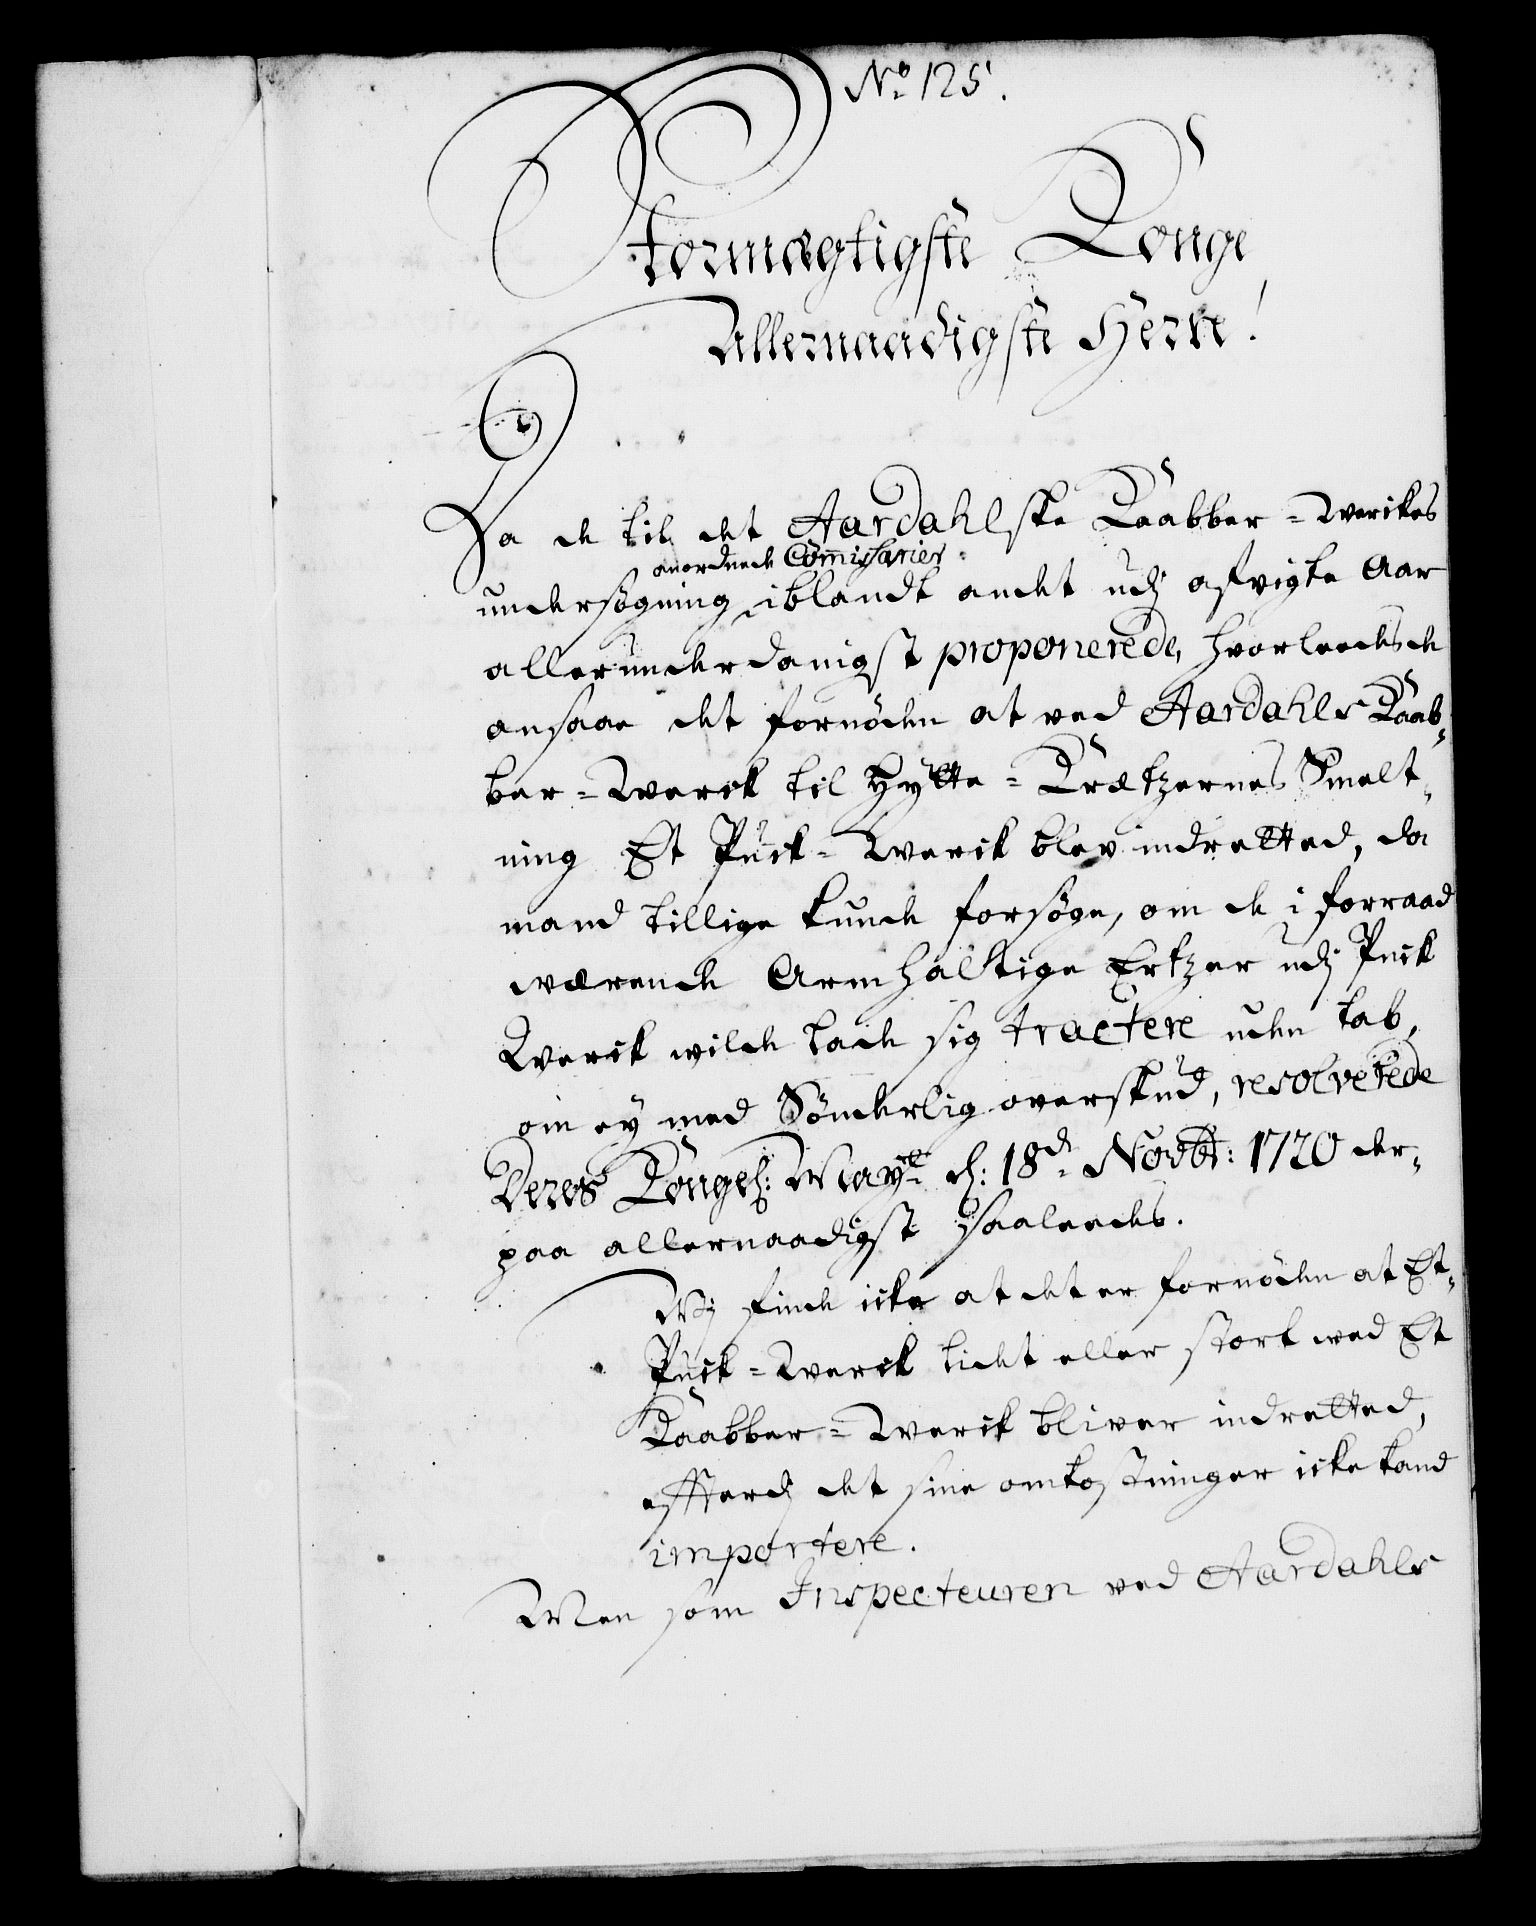 No 125.
Stormægtigste Konge
Allernaadigste Herre!
Da de til det Aardahlske Kaabber=Werckes
anordnede Commissarier
undersøgning iblandt andet udj afvigte Aar
allerunderdanigst proponerede, hvorleedes de
ansaae det fornöden at ved Aardahls Kaab„
ber=Werck til Hytte=Krætzernes Smelt„
ning Et Puck=Werck blev indretted, da
mand tillige kunde forsøge, om de i forraad
værende Armhaltige Ertzer udj Puck
Werck wilde lade sig tractere uden tab,
om ey med Sönderlig overskud, resolverede
Deres Kongel: Mayts d: 18de Novbr: 1720 der„
paa allernaadigst saaleedes.
Wj finde icke at det er fornöden at Et„
Puck=Werck lidet eller stort wed Et
Kaabber=Werck bliver indretted,
effterdj det sine omkostninger icke kand
importere.
Men som Inspecteuren ved Aardahls